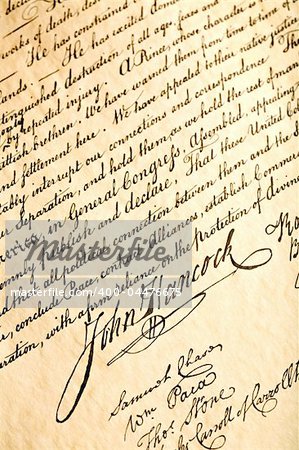 works of death, desolation
He has constrained
lands.— He has excited domes
distinguished destruction of all ages, sexes and
by repeated injury. A Prince, whose character is
British brethren. We have warned them from time to time of
and settlement here. We have appealed to their native justice
interrupt our connections and correspondence. They
our Separation, and hold them, as we hold the rest of man
America, in General Congress, Assembled, appealing
publish and declare, That these United Col
and that all political connection between them and the
conclude Peace, contract Alliances, establish Commerce
with a firm reliance on the protection of divine
John Hancock
Samuel Chase
Wm Paca
Thos Stone
Carroll of Carrollt
Masterfile
400-04475675